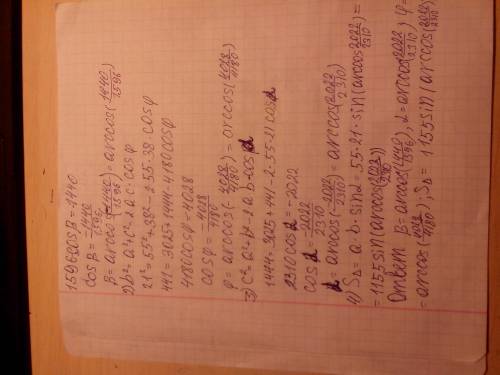 1596cosβ=-1440
cosβ=-1440/1596
β=arccos(-1440/1596)=arccos(1440/1596)
2) b²=a²+c²-2ac·cosφ
21²=55²+38²-2·55·38·cosφ
441=3025+1444-4180cosφ
4180cosφ=4028
cosφ=4028/4180
φ=arccos(-4028/4180)=arccos(4028/4180)
3) c²=a²+b²-2ab·cosα
1444=3025+441-2·55·21cosα
2310cosα=-2022
cosα=-2022/2310
α=arccos(-2022/2310)=arccos(2022/2310)
4) S△=a·b·sinα=55·21·sin(arccos(2022/2310))=
=1155sin(arccos(2022/2310))
Ответ: β=arccos(1440/1596), α=arccos(2022/2310), φ=
=arccos(4028/4180), S△=1155sin(arccos(2022/2310))